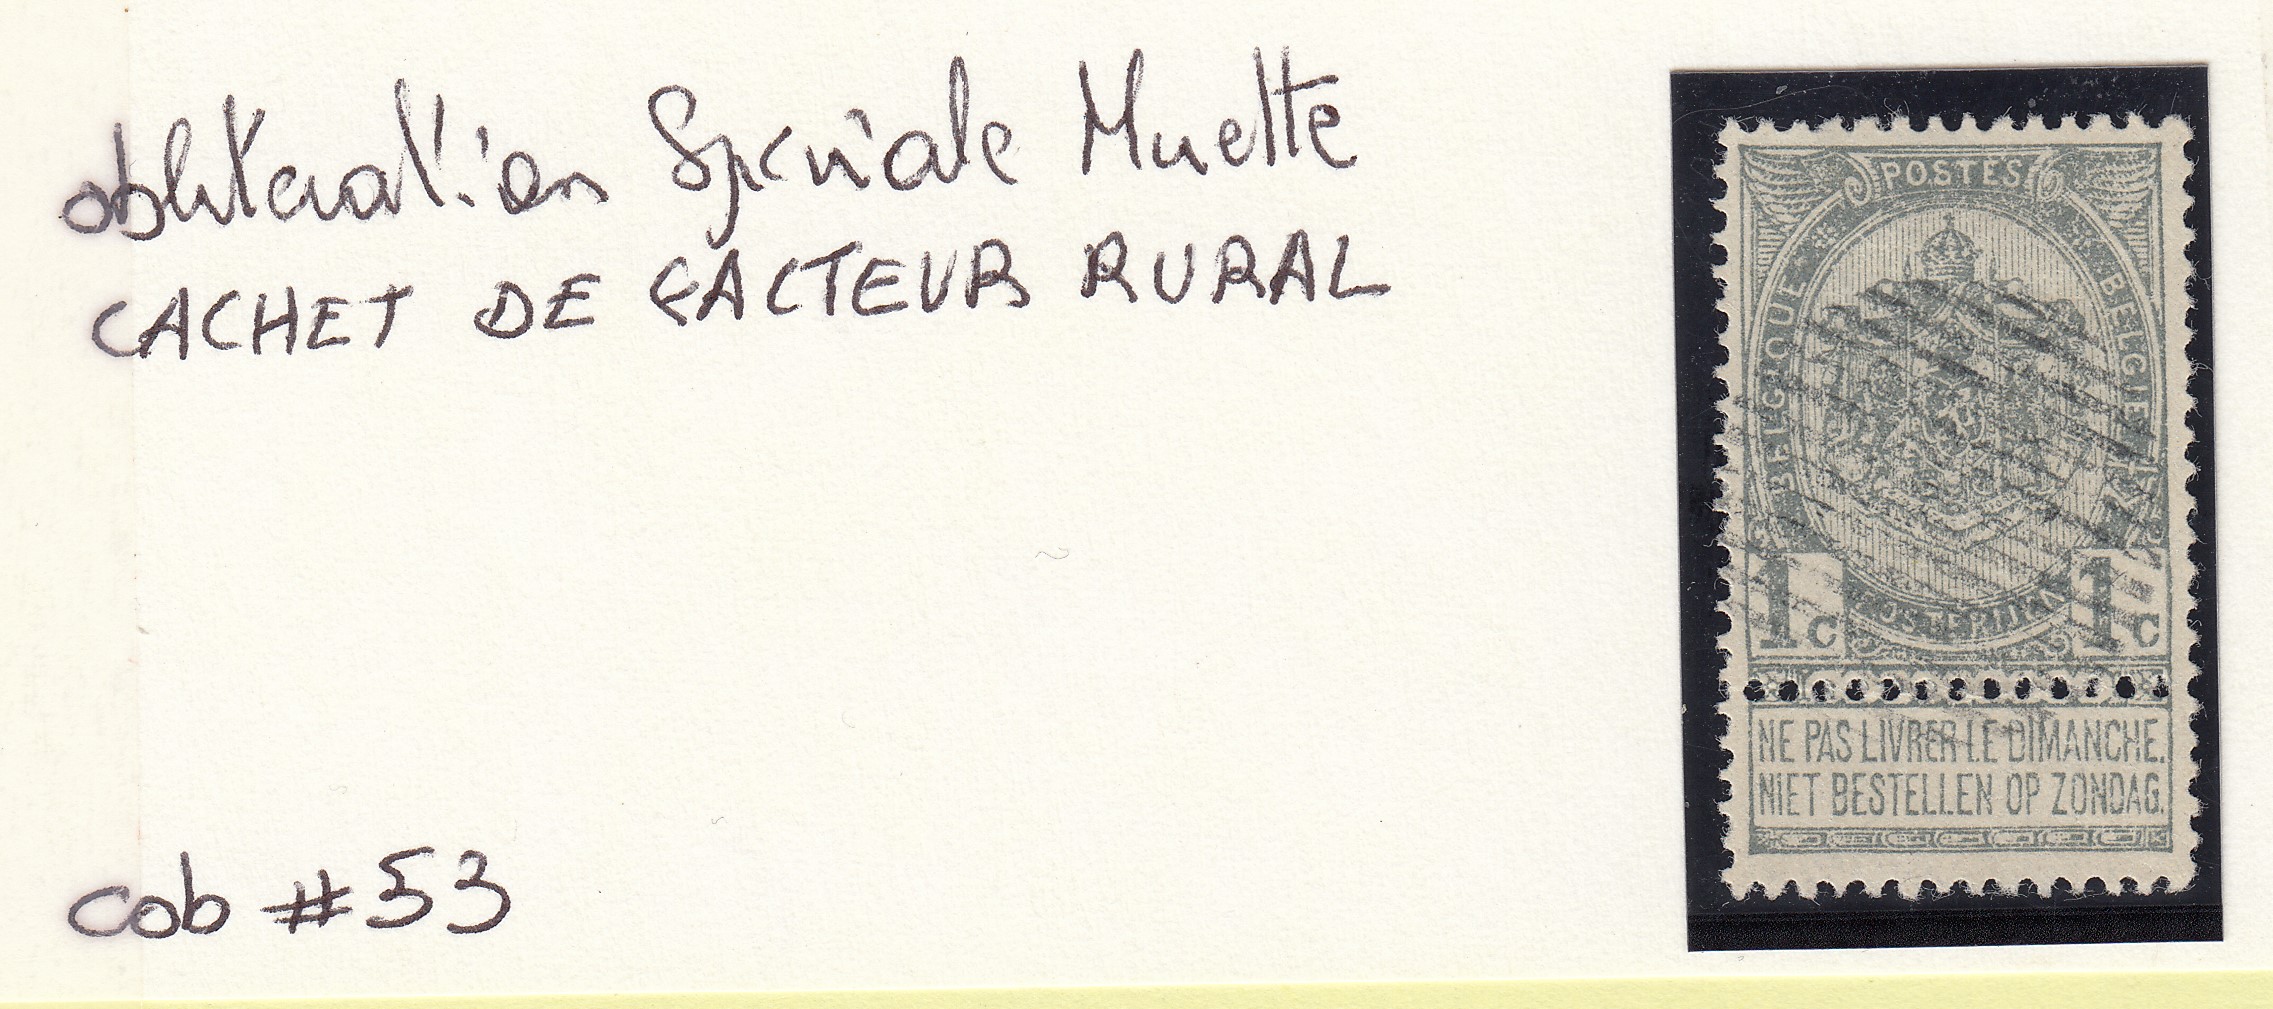 oblitération Spéciale Muette
CACHET DE FACTEUR RURAL
cob #53
POSTES
BELGIQUE
BELGIË
POSTERIJEN
1c 1c
NE PAS LIVRER LE DIMANCHE.
NIET BESTELLEN OP ZONDAG.